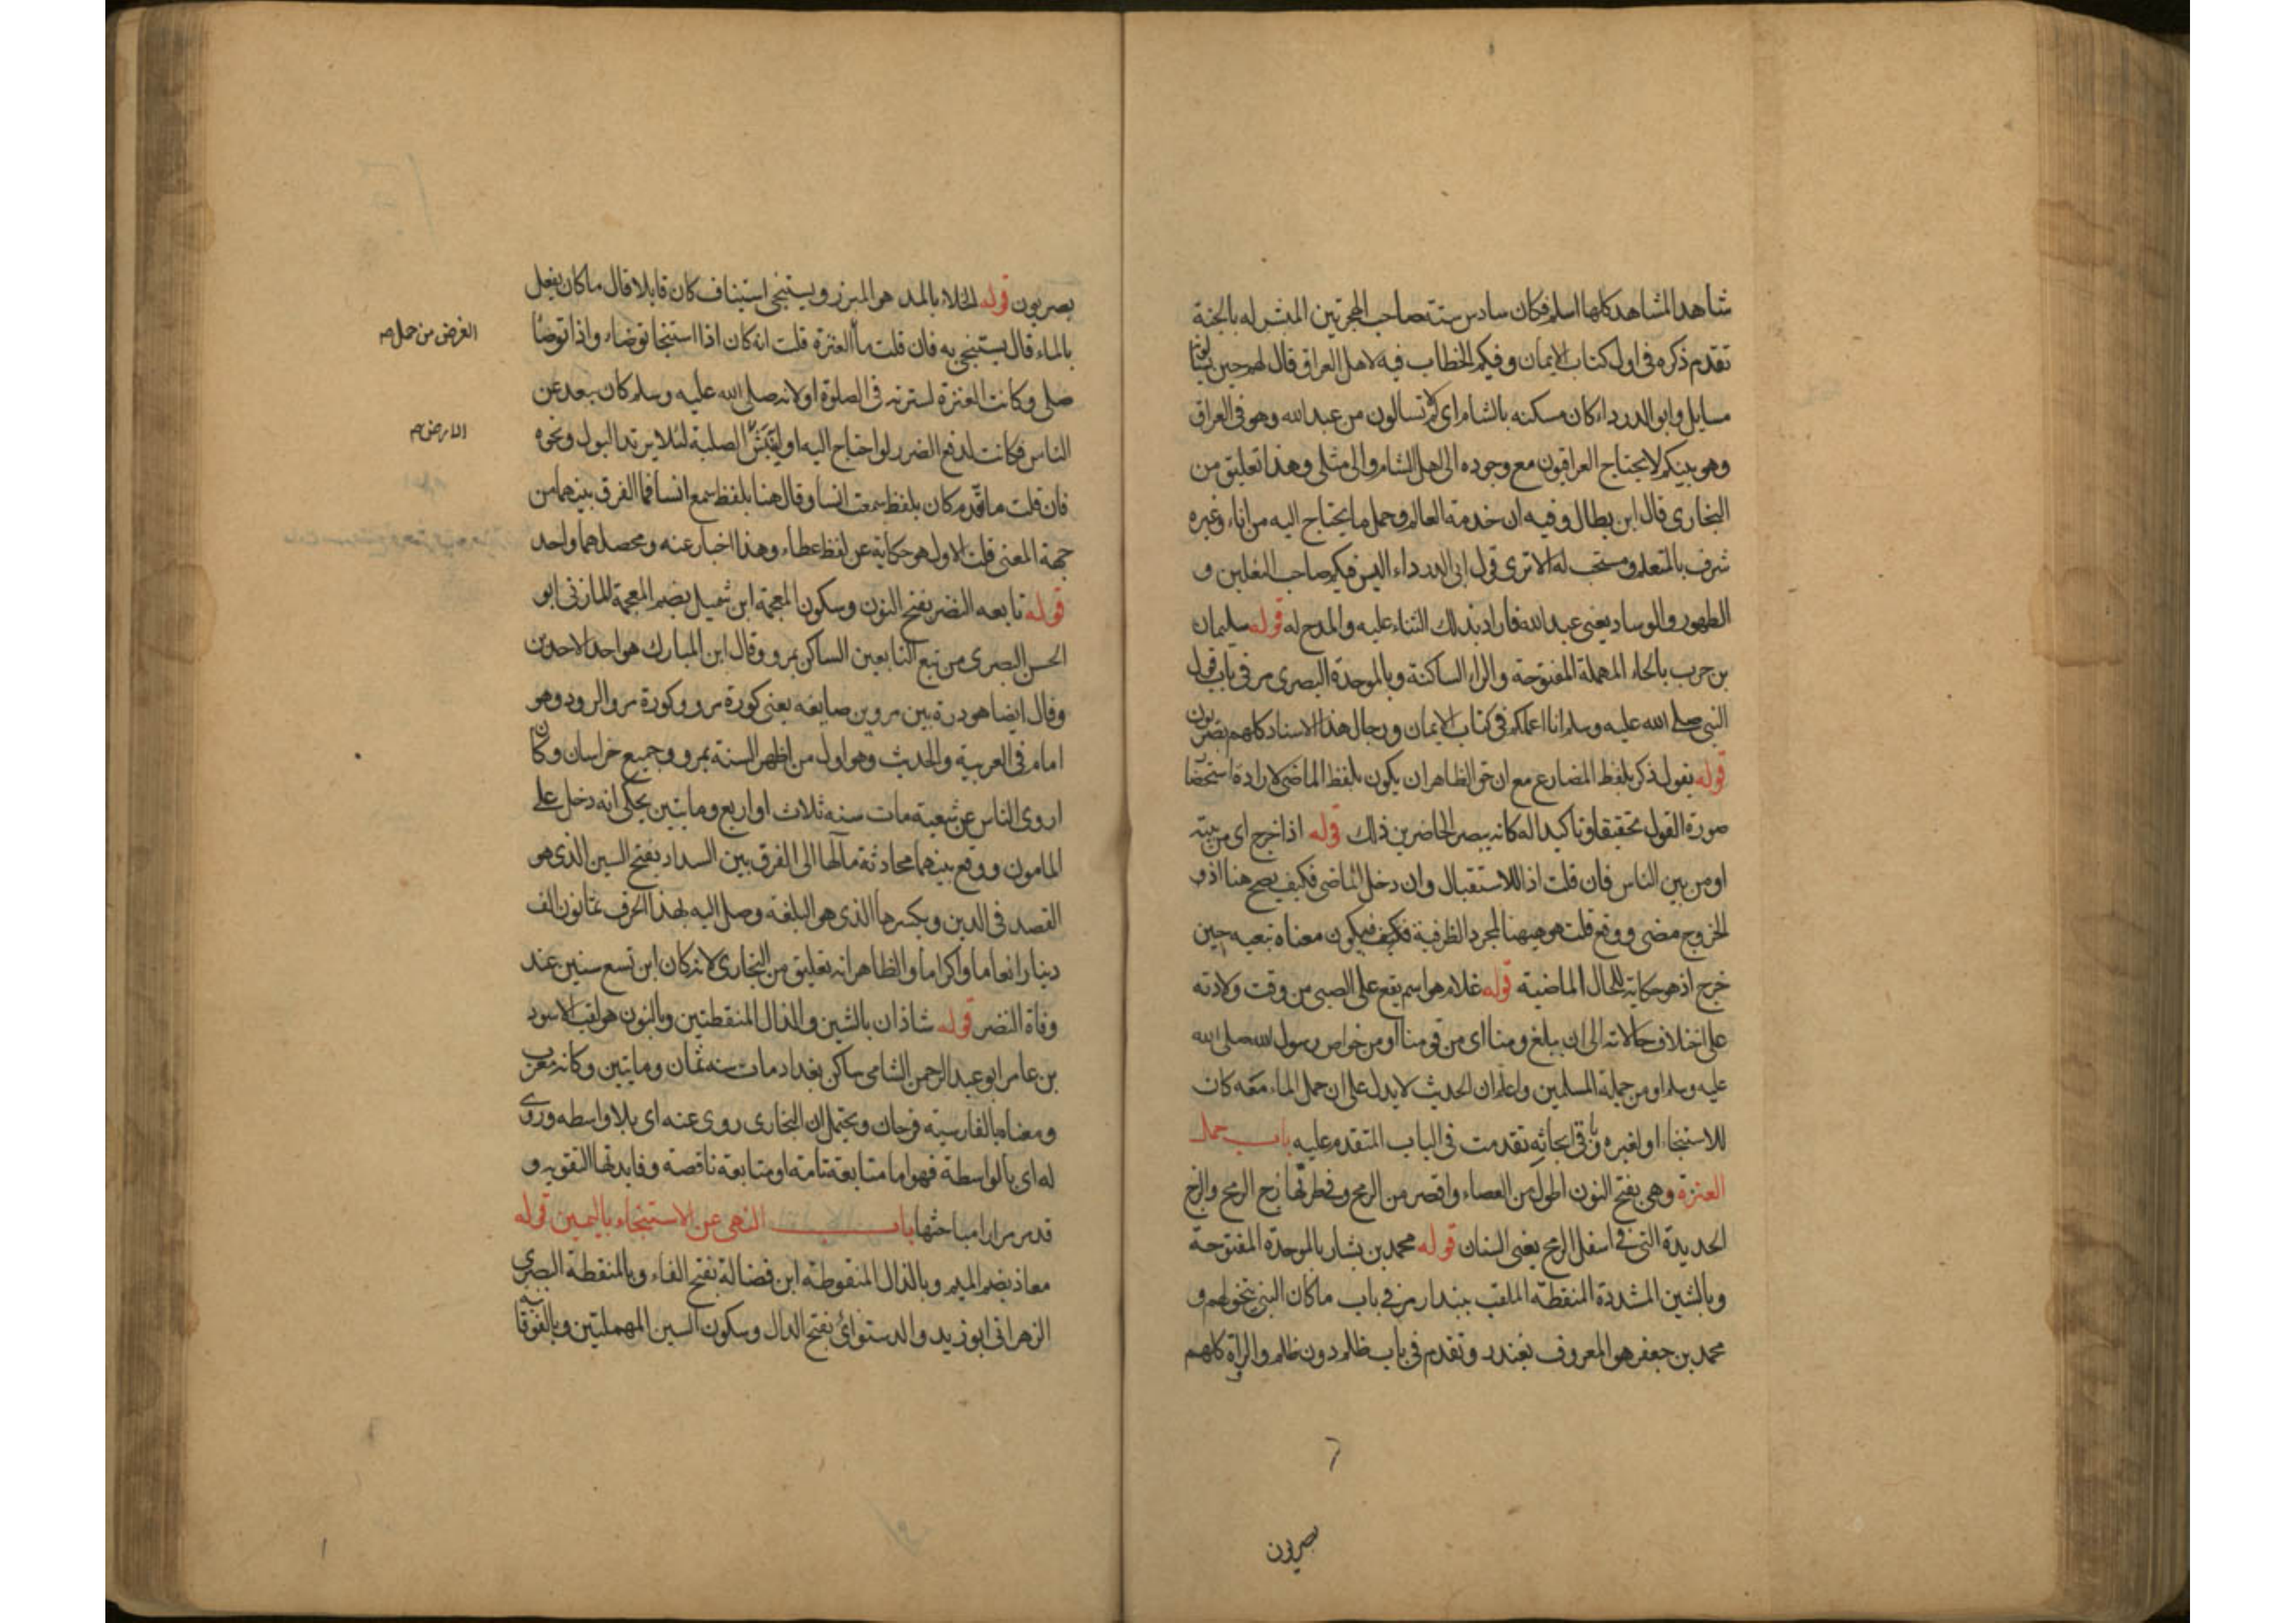 شاهد المشاهد كلها اسلم فكان سادس ستة صاحب الهجرتين المبشر له بالجنة
تقدم ذكره في اول كتاب الايمان وفيكم الخطاب فيه لاهل العراق قال لهم حين
مسايل وابو الدرداء كان مسكنه بالشام اي لم لا تسالون من عبد الله وهو في العراق
وهو بينكم لا يحتاج العراقيون مع وجوده الى اهل الشام والى مثلي وهذا تعليق من
البخاري قال ابن بطال وفيه ان خدمة العالم وحمل ما يحتاج اليه من اناء وغيره
شرف بالمتعلم ومستحب له الا ترى قول ابي الدرداء اليس فيكم صاحب النعلين و
الطهور والوساد يعني عبد الله فاراد بذلك الثناء عليه والمدح له قوله سليمان
بن حرب بالحاء المهملة المفتوحة والراء الساكنة وبالموحدة البصري مر في باب قول
النبي صلى الله عليه وسلم انا اعلمكم في كتاب الايمان ورجال هذا الاسناد كلهم بصريون
قوله يقول ذكر بلفظ المضارع مع ان حق الظاهر ان يكون بلفظ الماضي لارادة استحضار
صورة القول تحقيقا وتاكيدا له كانه يبصر الحاضرين ذلك قوله اذا خرج اي من بيته
او من بين الناس فان قلت اذا للاستقبال وان دخل الماضي فكيف يصح هنا اذ و
الخروج مضى ووقع قلت هو ههنا لمجرد الظرفية فيكون معناه تبعته حين
خرج اذ هو حكاية للحال الماضية قوله غلام هو اسم يقع على الصبي من وقت ولادته
على اختلاف حالاته الى ان يبلغ ومنا اي من قومنا او من خواص رسول الله صلى الله
عليه وسلم او من جملة المسلمين واعلم ان الحديث لا يدل على ان حمل الماء معه كان
للاستنجاء او لغيره وباقي ابحاثه تقدمت في الباب المتقدم عليه باب حمل
العنزة وهي بفتح النون اطول من العصاء واقصر من الرمح وفي طرفها زج الرمح والزج
الحديدة التي في اسفل الرمح يعني السنان قوله محمد بن بشار بالموحدة المفتوحة
وبالشين المشددة المنقطة الملقب ببندار مر في باب ما كان النبي يتخولهم و
محمد بن جعفر هو المعروف بغندر وتقدم في باب ظلم دون ظلم والرواة كلهم
بصريون
بصريون قوله الخلاء بالمد هو المبرز ويستنجي استيناف كان قايلا قال ما كان يفعل
بالماء قال يستنجي به فان قلت ما العنزة قلت انه كان اذا استنجا توضاء واذا توضا
صلى وكانت العنزة لسترته في الصلوة او لانه صلى الله عليه وسلم كان يبعد عن
الناس فكانت لدفع الضرر لو احتاج اليه او لنبش الصلبة لئلا يرتد البول ونحوه
فان قلت ما تقدم كان بلفظ سمعت انسا وقال هنا بلفظ سمع انسا فما الفرق بينهما من
جهة المعنى قلت الاول هو حكاية عن لفظ عطاء وهذا اخبار عنه ومحصلهما واحد
قوله تابعه النضر بفتح النون وسكون المعجمة ابن شميل بضم المعجمة المازني ابو
الحسن البصري من تبع التابعين الساكن بمرو وقال ابن المبارك هو احد الاحدين
وقال ايضا هو درة بين مروين ضايعة يعني كورة مرو وكورة مرو الرود وهو
امام في العربية والحديث وهو اول من اظهر السنة بمرو وجميع خراسان وكان
اروى الناس عن شعبة مات سنه ثلاث او اربع ومايتين يحكى انه دخل على
المامون ووقع بينهما محادثة مآلها الى الفرق بين السداد بفتح السين الذي هو
القصد في الدين وبكسرها الذي هو البلغة وصل اليه بهذا الحرف ثمانون الف
دينار انعاما واكراما والظاهر انه تعليق من البخاري لانه كان ابن تسع سنين عند
وفاة النضر قوله شاذان بالشين والذال المنقطتين وبالنون هو لقب الاسود
بن عامر ابو عبد الرحمن الشامي ساكن بغداد مات سنه ثمان ومايتين وكانه معرب
ومعناه بالفارسية فرحان ويحتمل ان البخاري روى عنه اي بلا واسطه وروى
له اي بالواسطة فهو اما متابعة تامة او متابعة ناقصة وفايدتها التقوية و
قد مر مرارا مباحثها باب النهي عن الاستنجاء باليمين قوله
معاذ بضم الميم وبالذال المنقوطة ابن فضالة بفتح الفاء وبالمنقطة البصري
الزهراني ابو زيد والدستوائ بفتح الدال وسكون السين المهملتين وبالفوقا
الغرض من حمل صح
الارض صح